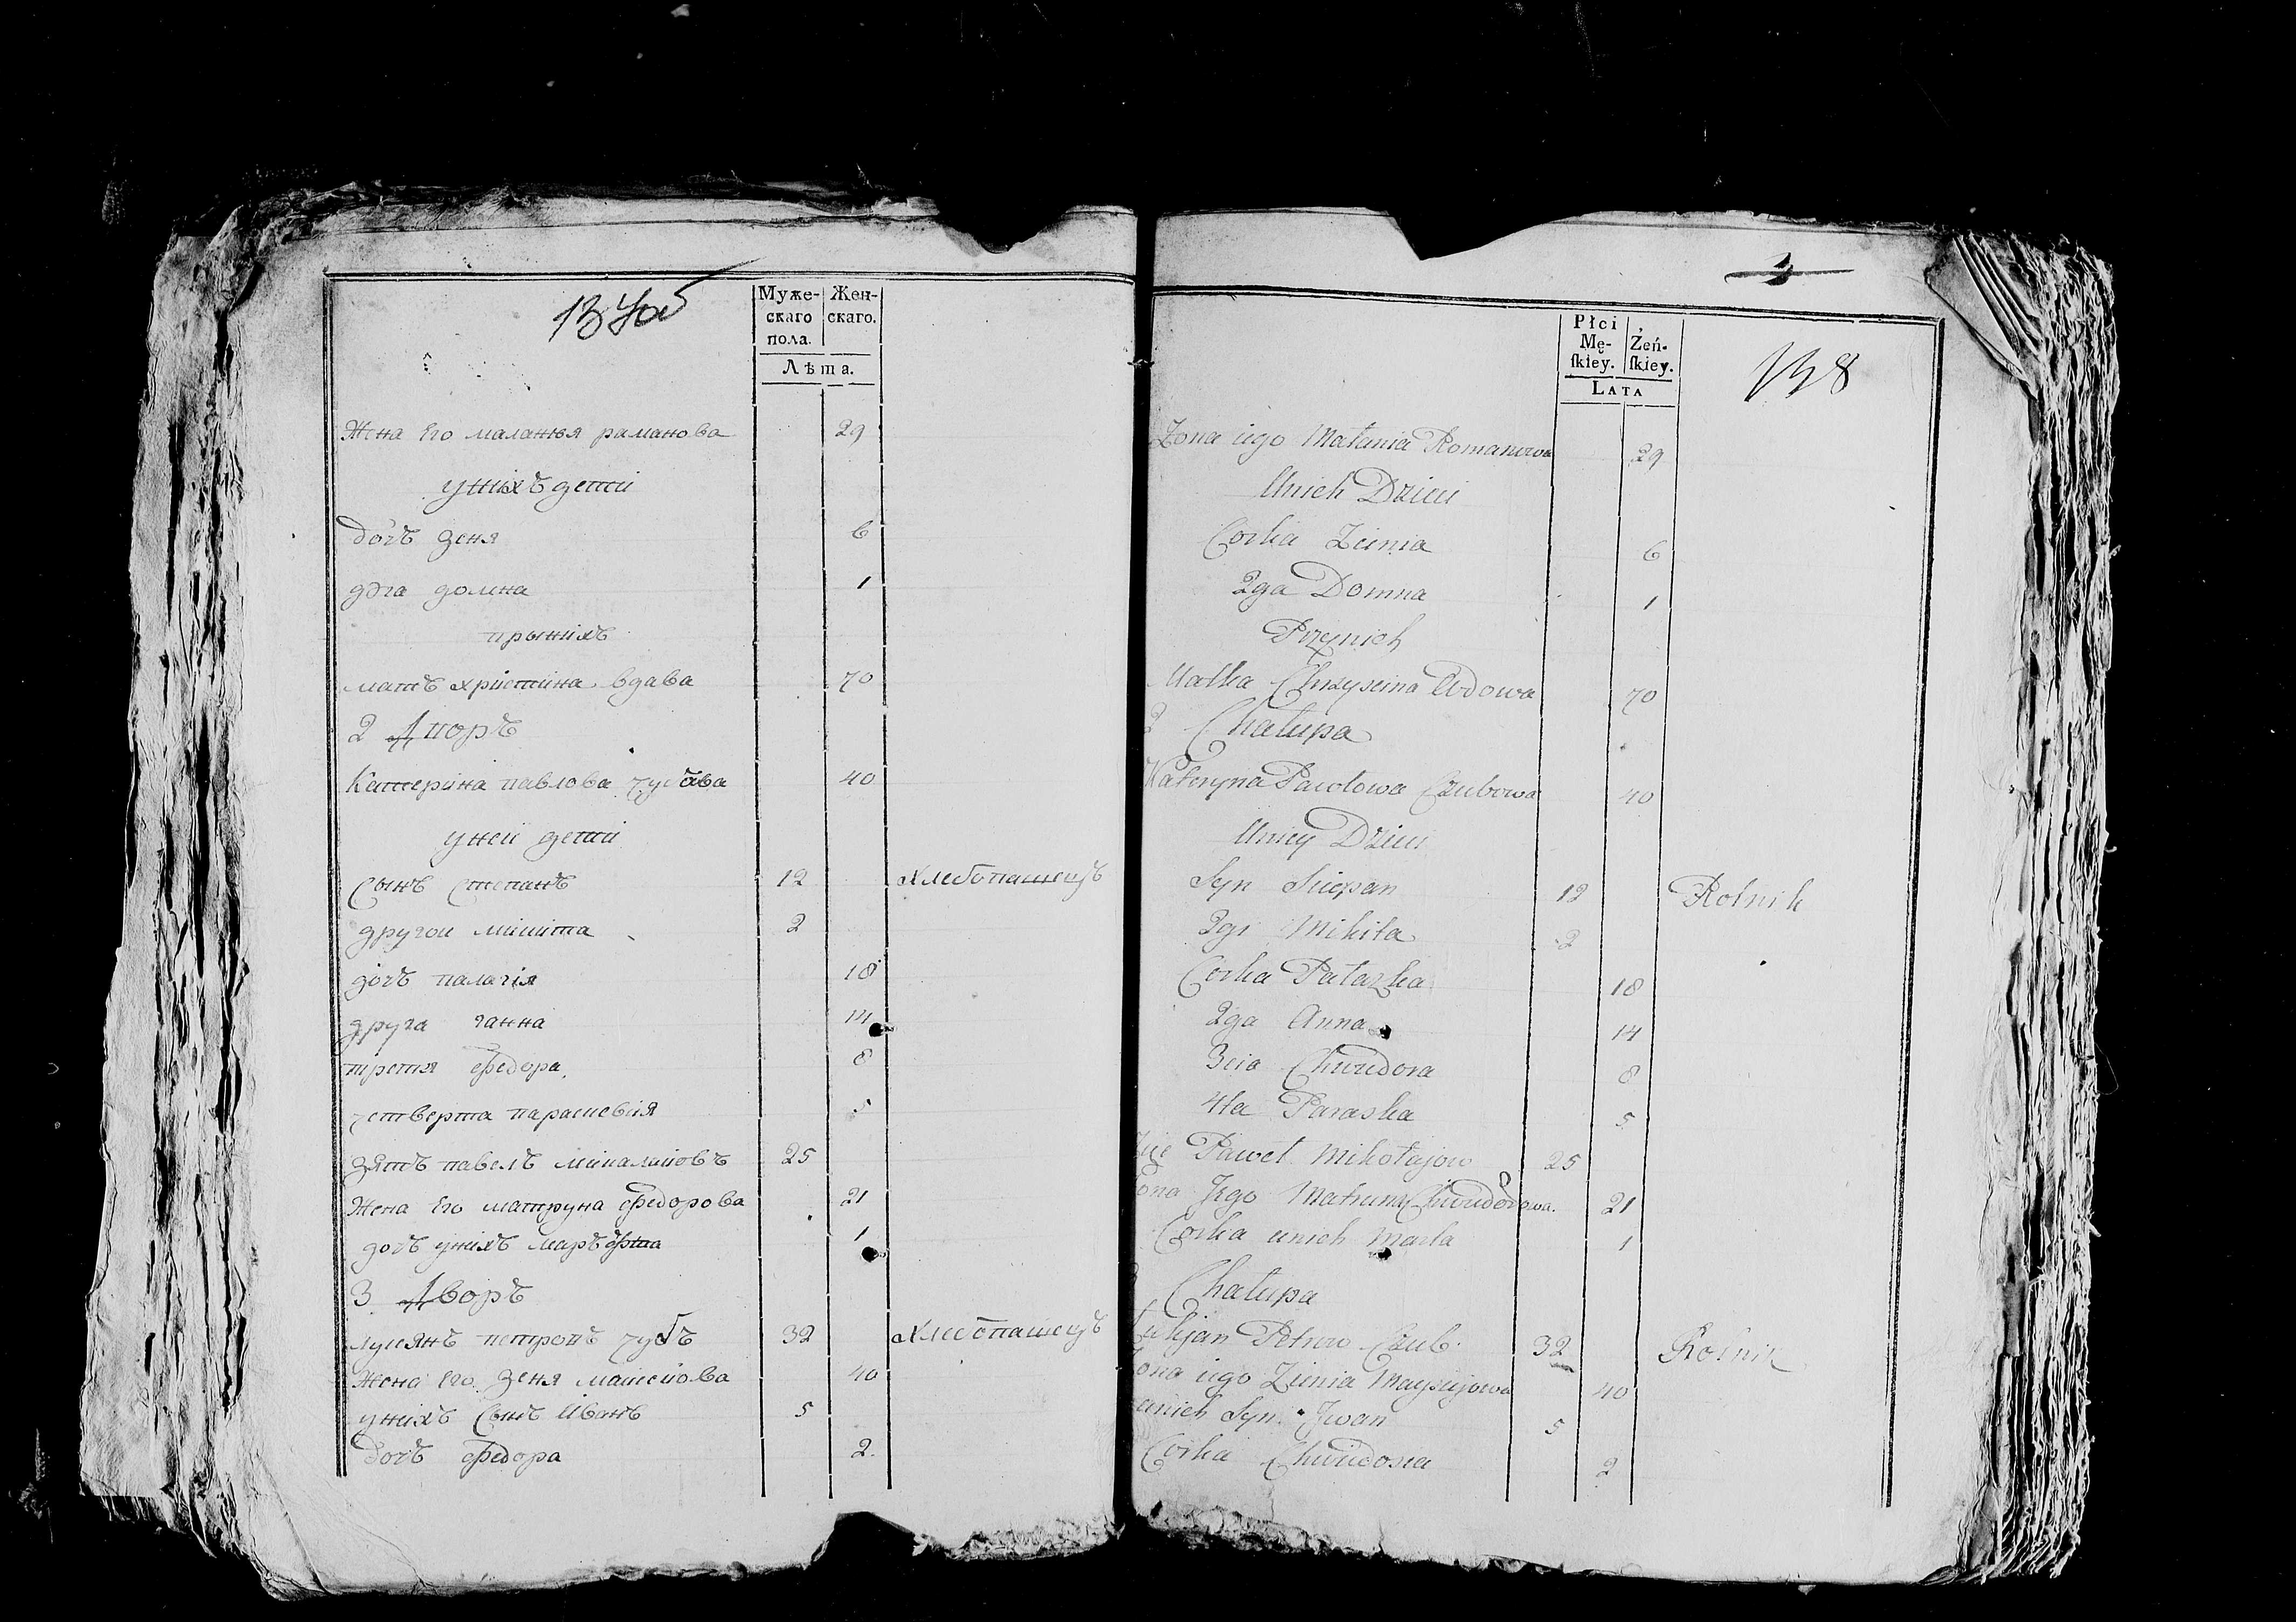 137об
Муже-скаго пола. Жен-скаго.
Лѣта.
Жена Его маланья раманова 29
унихъ дети
дочъ зеня 6
дрга домна 1
прынихъ
матъ христина вдава 70
2 Дворъ
Катерина павлова чубава 40
уней дети
Сынъ Степанъ 12 хлебопашецъ
другои микита 2
дочъ палагія 18
друга ганна 14
третя федора 8
четверта параскевія 5
зятъ павелъ миколаиовъ 25
Жена Его матруна федорова 21
дочъ унихъ марѳа 1
3 Дворъ
лукянъ петровъ чубъ 32 хлебопашецъ
Жена Его Зеня матейова 40
унихъ Сынъ Иванъ 5
дочъ федора 2
3
138
Płci Mę-skiey. Żeń-skiey.
LATA
Zona iego Małania Romanowa 29
Unich Dzieci
Corka Zienia 6
2ga Domna 1
Przynich
Matka Chrzyscina Wdowa 70
2 Chałupa
Kateryna Pawłowa Czubowa 40
Uniey Dzieci
Syn Sciepan 12 Rolnik
2gi Mikita 2
Corka Pałazka 18
2ga Anna 14
3cia Chwiedora 8
4ta Paraska 5
Zięć Paweł Mikołajow 25
Zona Jego Matruna Chwiedorowa 21
Corka unich Marta 1
Chałupa
Łukjan Petrow Czub 32 Rolnik
Zona iego Zienia Maysiejowa 40
unich Syn Jwan 5
Corka Chwiedosia 2